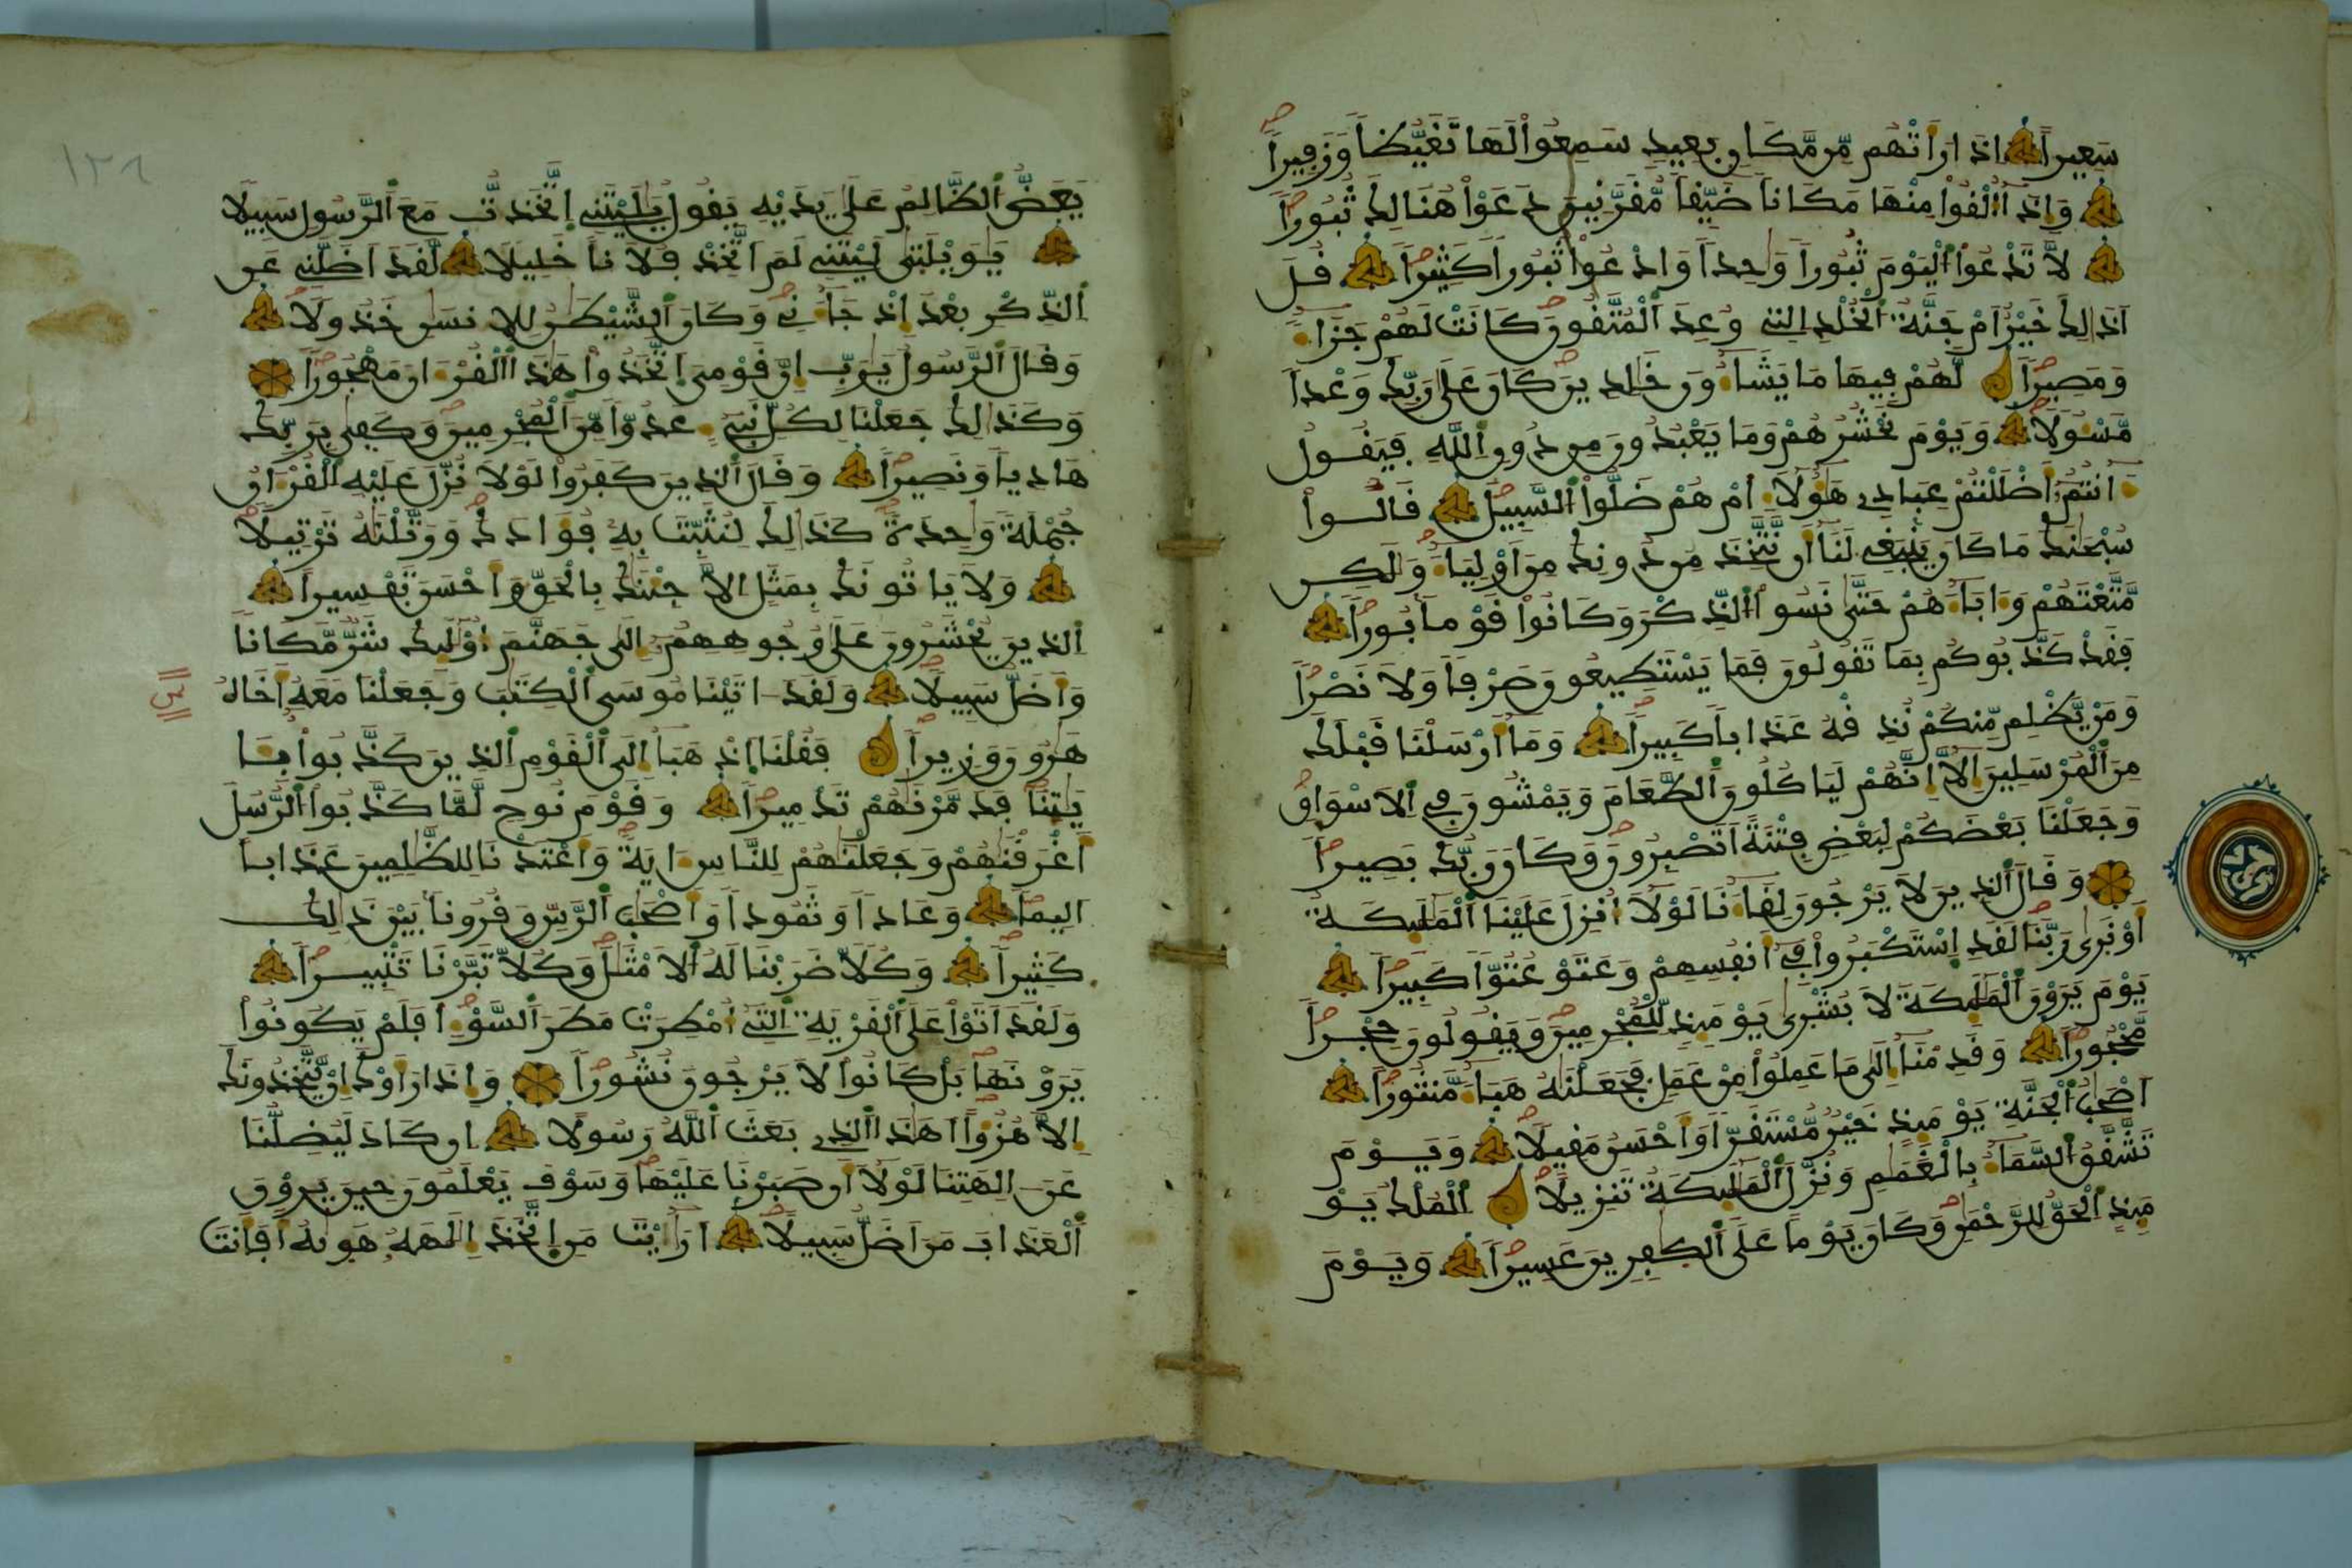 سَعِيراً اِذَا رَأَتْهُم مِّن مَّكَانٍ بَعِيدٍ سَمِعُواْ لَهَا تَغَيُّظاً وَزَفِيراً
وَإِذَا أُلْقُواْ مِنْهَا مَكَاناً ضَيِّقاً مُّقَرَّنِينَ دَعَوْاْ هُنَالِكَ ثُبُوراً
لاَّ تَدْعُواْ الْيَوْمَ ثُبُوراً وَاحِداً وَادْعُواْ ثُبُوراً كَثِيراً قُلَ
اَذَالِكَ خَيْرٌ اَمْ جَنَّةُ الْخُلْدِ التِے وُعِدَ الْمُتَّقُونَ كَانَتْ لَهُمْ جَزَاءً
وَمَصِيراً لَّهُمْ فِيهَا مَا يَشَاءُونَ خَالِدِينَ كَانَ عَلَى رَبِّكَ وَعْداً
مَّسْـُٔولاً وَيَوْمَ نَحْشُرُهُمْ وَمَا يَعْبُدُونَ مِن دُونِ اِللَّهِ فَيَقُولُ
ءَآنتُمُ أَضْلَلْتُمْ عِبَادِے هَؤُلَاءِ أَمْ هُمْ ضَلُّواْ السَّبِيلَ قَالُواْ
سُبْحَنَكَ مَا كَانَ يَنۢبَغِے لَنَا أَن نَّتَّخِذَ مِن دُونِكَ مِنَ اَوْلِيَاءَ وَلَكِن
مَّتَّعْتَهُمْ وَءَابَاءَهُمْ حَتَّى نَسُواْ الذِّكْرَ وَكَانُواْ قَوْماً بُوراً
فَقَدْ كَذَّبُوكُم بِمَا تَقُولُونَ فَمَا يَسْتَطِيعُونَ صَرْفاً وَلاَ نَصْراً
وَمَنْ يَّظْلِم مِّنكُمْ نُذِقْهُ عَذَاباً كَبِيراً وَمَا أَرْسَلْنَا قَبْلَكَ
مِنَ الْمُرْسَلِينَ إِلاَّ إِنَّهُمْ لَيَاكُلُونَ الطَّعَامَ وَيَمْشُونَ فِي اِلاَسْوَاقِ
وَجَعَلْنَا بَعْضَكُمْ لِبَعْضٍ فِتْنَةً اَتَصْبِرُونَ وَكَانَ رَبُّكَ بَصِيراً
وَقَالَ الذِينَ لاَ يَرْجُونَ لِقَاءَنَا لَوْلاَ أُنزِلَ عَلَيْنَا الْمَلَٰئِكَةُ
أَوْ نَرَى رَبَّنَا لَقَدِ اِسْتَكْبَرُواْ فِے أَنفُسِهِمْ وَعَتَوْ عُتُوّاً كَبِيراً
يَوْمَ يَرَوْنَ الْمَلَٰئِكَةَ لاَ بُشْرَى يَوْمَئِذٍ لِّلْمُجْرِمِينَ وَيَقُولُونَ حِجْراً
مَّحْجُوراً وَقَدِمْنَا إِلَى مَا عَمِلُواْ مِنْ عَمَلٍ فَجَعَلْنَهُ هَبَاءً مَّنثُوراً
أَصْحَبُ الْجَنَّةِ يَوْمَئِذٍ خَيْرٌ مُّسْتَقَرّاً وَأَحْسَنُ مَقِيلاً وَيَوْمَ
تَشَّقَّقُ السَّمَاءُ بِالْغَمَمِ وَنُزِّلَ الْمَلَٰئِكَةُ تَنزِيلاً الْمُلْكُ يَوْ
مَئِذٍ اِلْحَقُّ لِلرَّحْمَنِ وَكَانَ يَوْماً عَلَى الْكَفِرِينَ عَسِيراً وَيَوْمَ
١٢٨
يَعَضُّ الظَّالِمُ عَلَى يَدَيْهِ يَقُولُ يَلَيْتَنِے اِتَّخَذتُّ مَعَ الرَّسُولِ سَبِيلاً
يَاوَيْلَتَى لَيْتَنِے لَمَ اَتَّخِذْ فُلاَناً خَلِيلاً لَّقَدَ اَضَلَّنِے عَنِ
الذِّكْرِ بَعْدَ إِذْ جَاءَنِے وَكَانَ الشَّيْطَنُ لِلاِنسَنِ خَذُولاً
وَقَالَ الرَّسُولُ يَرَبِّ إِنَّ قَوْمِيَ اَتَّخَذُواْ هَذَا الْقُرْءَانَ مَهْجُوراً
وَكَذَالِكَ جَعَلْنَا لِكُلِّ نَبِيٓءٍ عَدُوّاً مِّنَ الْمُجْرِمِينَ وَكَفَى بِرَبِّكَ
هَادِياً وَنَصِيراً وَقَالَ الذِينَ كَفَرُواْ لَوْلاَ نُزِّلَ عَلَيْهِ الْقُرْءَانُ
جُمْلَةً وَاحِدَةً كَذَالِكَ لِنُثَبِّتَ بِهِ فُؤَادَكَ وَرَتَّلْنَهُ تَرْتِيلاً
وَلاَ يَاتُونَكَ بِمَثَلٍ اِلاَّ جِئْنَكَ بِالْحَقِّ وَأَحْسَنَ تَفْسِيراً
الذِينَ يُحْشَرُونَ عَلَى وُجُوهِهِمُ إِلَى جَهَنَّمَ أُوْلَئِكَ شَرٌّ مَّكَاناً
وَأَضَلُّ سَبِيلاً وَلَقَدَ ءَاتَيْنَا مُوسَى الْكِتَبَ وَجَعَلْنَا مَعَهُ أَخَاهُ
هَرُونَ وَزِيراً فَقُلْنَا اَذْهَبَا إِلَى الْقَوْمِ الذِينَ كَذَّبُواْ بِـَٔا
يَتِنَا فَدَمَّرْنَهُمْ تَدْمِيراً وَقَوْمَ نُوحٍ لَّمَّا كَذَّبُواْ الرُّسُلَ
أَغْرَقْنَهُمْ وَجَعَلْنَهُمْ لِلنَّاسِ ءَايَةً وَأَعْتَدْنَا لِلظَّلِمِينَ عَذَاباً
اَلِيماً وَعَاداً وَثَمُوداً وَأَصْحَبَ الرَّسِّ وَقُرُوناً بَيْنَ ذَالِكَ
كَثِيراً وَكُلاًّ ضَرَبْنَا لَهُ الاَمْثَلَ وَكُلاًّ تَبَّرْنَا تَتْبِيراً
وَلَقَدَ اَتَوْاْ عَلَى الْقَرْيَةِ التِے أُمْطِرَتْ مَطَرَ السَّوْءِ اَفَلَمْ يَكُونُواْ
يَرَوْنَهَا بَلْ كَانُواْ لاَ يَرْجُونَ نُشُوراً وَإِذَا رَأَوْكَ إِنْ يَّتَّخِذُونَكَ
إِلاَّ هُزُؤاً اَهَذَا الذِے بَعَثَ اَللَّهُ رَسُولاً اِن كَادَ لَيُضِلُّنَا
عَنَ ـالِهَتِنَا لَوْلاَ أَن صَبَرْنَا عَلَيْهَا وَسَوْفَ يَعْلَمُونَ حِينَ يَرَوْنَ
اَلْعَذَابَ مَنَ اَضَلُّ سَبِيلاً اَرَأَيْتَ مَنِ اِتَّخَذَ إِلَهَهُ هَوَىٰهُ أَفَأَنتَ